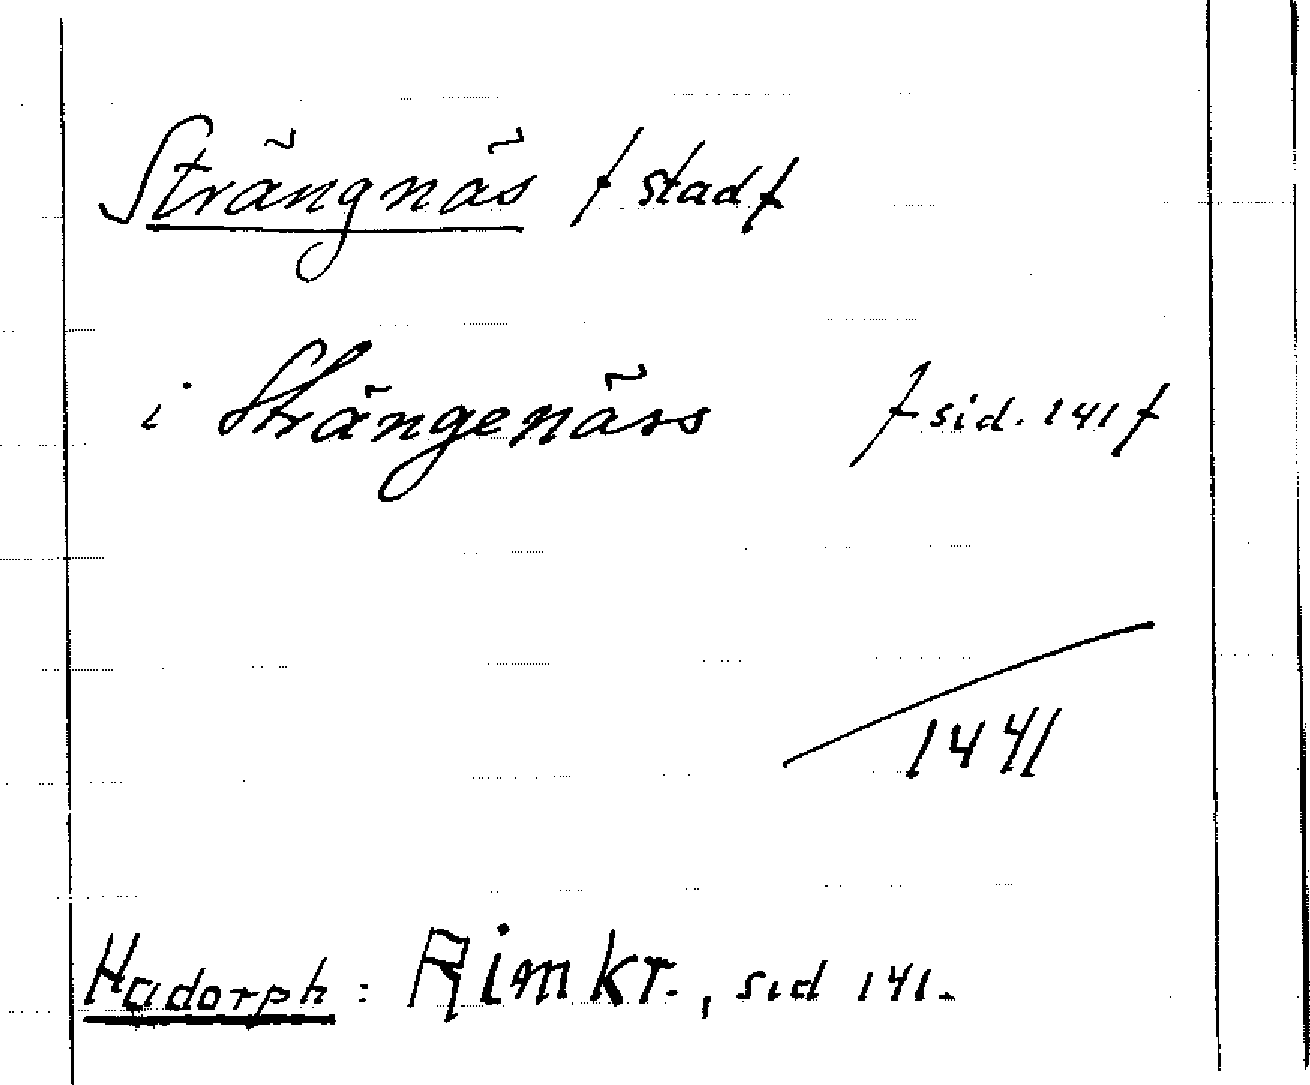 Strängnäs / stad /
i Strängenäss / sid. 141 /
1441
Hadorph: Rimkr., sid 141.